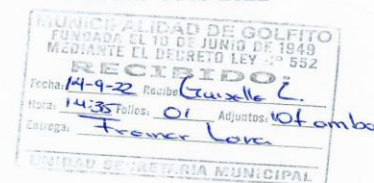 MUNICIPALIDAD DE GOLFITO
FUNDADA EL 10 DE JUNIO DE 1949
MEDIANTE EL DECRETO LEY N° 552
RECIBIDO:
Fecha: 14-9-22 Recibe: Guiselle C.
Hora: 14:35 Folios: 01 Adjuntos: 10f ambo
Entrega: Lora
UNIDAD SECRETARIA MUNICIPAL